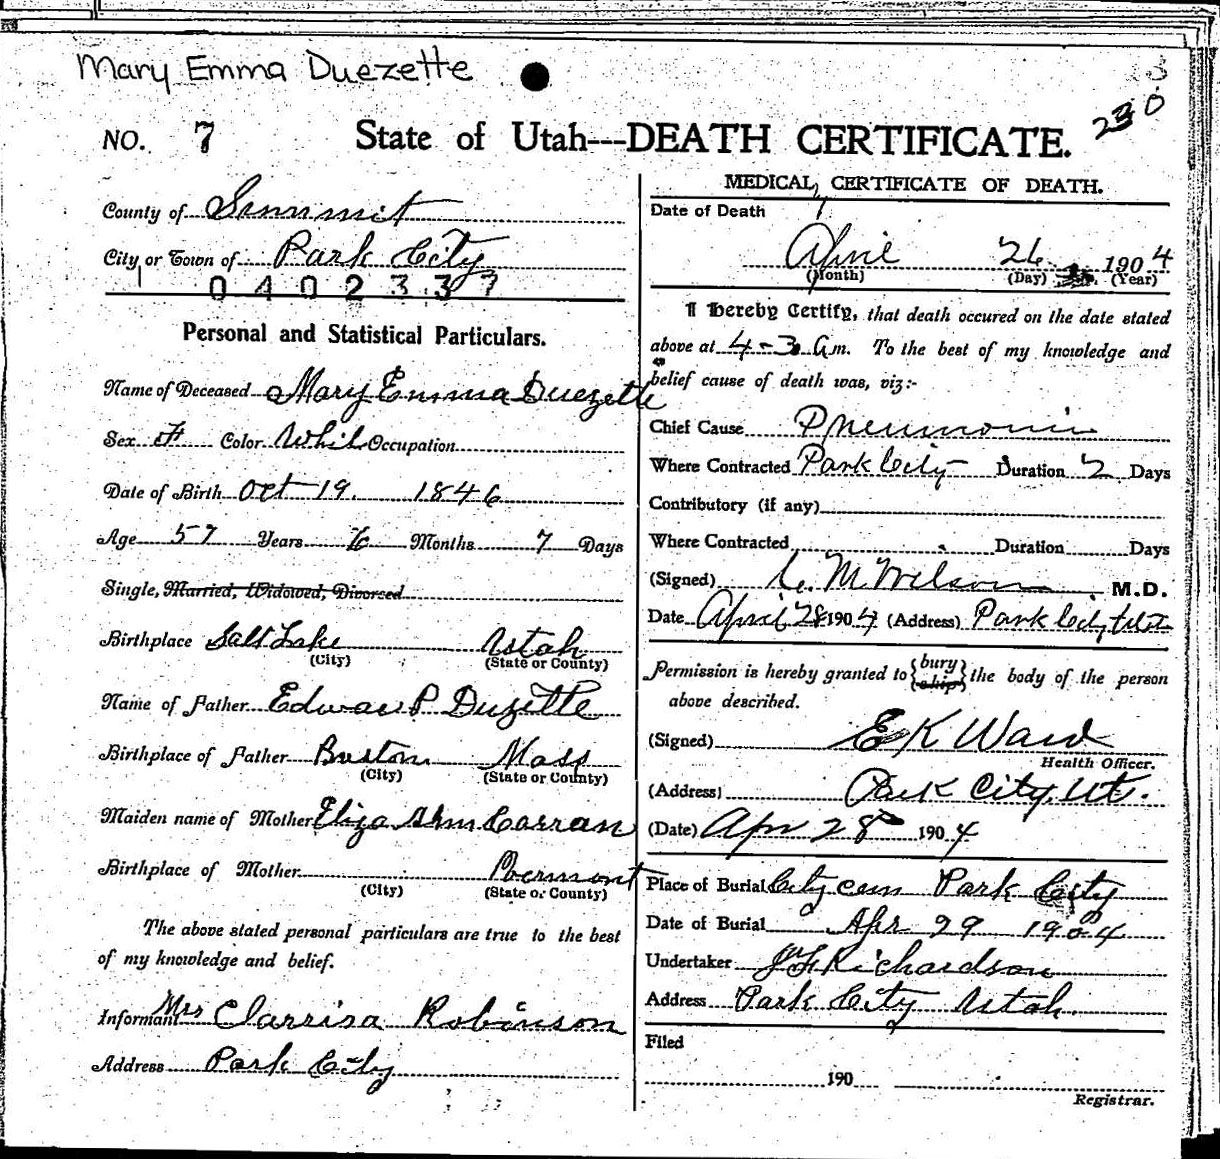 Mary Emma Duezette
230
NO. 7 State of Utah---DEATH CERTIFICATE.
County of Summit
City or Town of Park City
0402337
Personal and Statistical Particulars.
Name of Deceased Mary Emma Duezette
Sex F Color White Occupation
Date of Birth Oct 19. 1846
Age 57 Years 6 Months 7 Days
Single, Married, Widowed, Divorced
Birthplace Salt Lake Utah
(City) (State or County)
Name of Father Edward P Duzette
Birthplace of Father Boston Mass
(City) (State or County)
Maiden name of Mother Eliza Ann Carran
Birthplace of Mother Vermont
(City) (State or County)
The above stated personal particulars are true to the best
of my knowledge and belief.
Informant Mrs Clarrisa Robinson
Address Park City
MEDICAL CERTIFICATE OF DEATH.
Date of Death
April 26 1904
(Month) (Day) (Year)
I hereby Certify, that death occured on the date stated
above at 4-30 A m. To the best of my knowledge and
belief cause of death was, viz:-
Chief Cause Pneumonia
Where Contracted Park City Duration 2 Days
Contributory (if any)
Where Contracted Duration Days
(Signed) M. Wilson M.D.
Date April 28 1904 (Address) Park City Utah
Permission is hereby granted to {bury ship} the body of the person
above described.
(Signed) E K Ward
Health Officer.
(Address) Park City, Ut.
(Date) Apr 28 1904
Place of Burial City cem Park City
Date of Burial Apr 29 1904
Undertaker Richardson
Address Park City Utah.
Filed
190
Registrar.